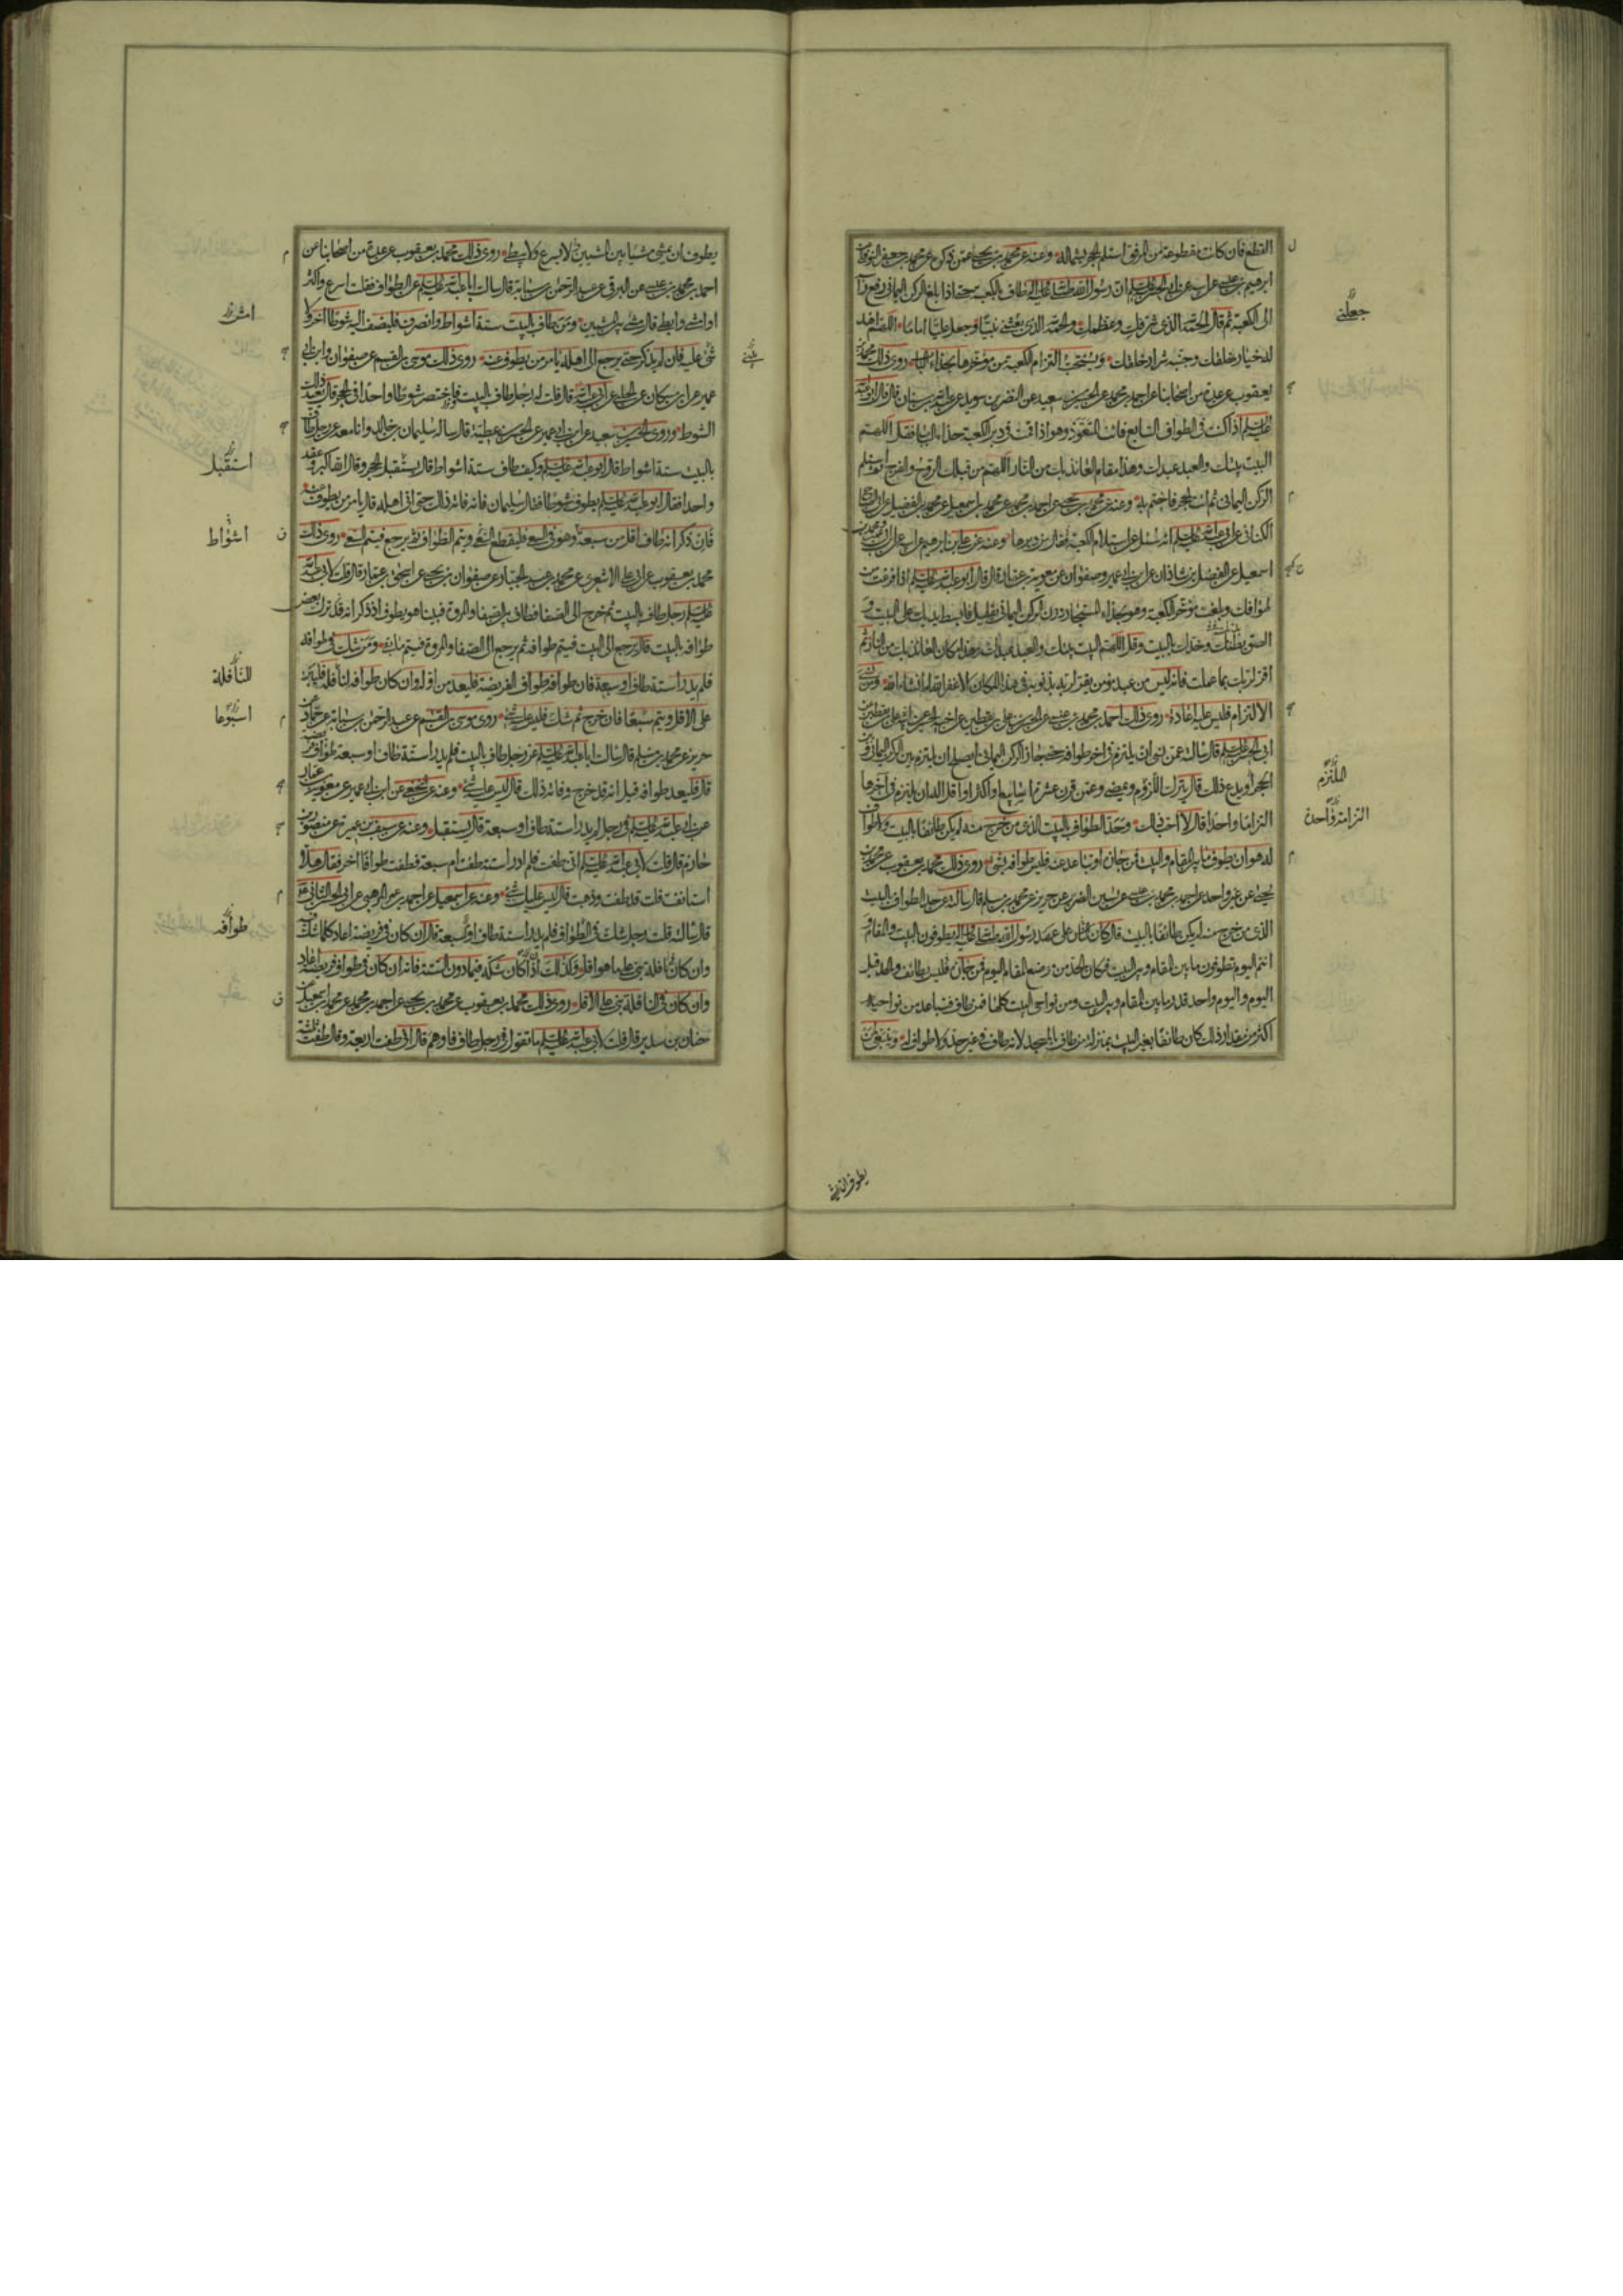 القطع فان كانت مقطوعة من المرفق استلم الحجر بشماله وعنه عن محمد بن يحيى عمن ذكره عن محمد بن جعفر النوفلي عن
ابرهيم بن عيسى عن ابيه عن ابي الحسن عليه السلم ان رسول الله صلى الله عليه واله طاف بالكعبة حتى اذا بلغ الركن اليماني رفع راسه
الى الكعبة ثم قال الحمد لله الذي شرفك وعظمك والحمد لله الذي بعثني نبيا وجعل عليا اماما اللهم اهد
له خيار خلقك وجنبه شرار خلقك ويستحب التزام الكعبة من مؤخرها بحذاء الباب روى ذلك محمد بن
يعقوب عن عدة من اصحابنا عن احمد بن محمد عن الحسين بن سعيد عن النضر بن سويد عن عبد الله بن سنان قال قال ابو عبد الله
عليه السلم اذا كنت في الطواف السابع فائت المتعوذ وهو اذا قمت في دبر الكعبة حذاء الباب فقل اللهم
البيت بيتك والعبد عبدك وهذا مقام العائذ بك من النار اللهم من قبلك الروح والفرج ثم استلم
الركن اليماني ثم ائت الحجر فاختم به وعنه عن محمد بن يحيى عن احمد بن محمد عن محمد بن اسمعيل عن محمد بن الفضيل عن ابي الصباح
الكناني عن ابي عبد الله عليه السلم انه سئل عن استلام الكعبة فقال من دبرها وعنه عن علي بن ابرهيم عن ابيه عن ابن ابي عمير ومحمد بن
اسمعيل عن الفضل بن شاذان عن ابن ابي عمير وصفوان عن معوية بن عمار قال قال ابو عبد الله عليه السلم اذا فرغت من
طوافك وبلغت مؤخر الكعبة وهو بحذاء المستجار دون الركن اليماني بقليل فابسط يديك على البيت و
الصق بطنك وخدك بالبيت وقل اللهم البيت بيتك والعبد عبدك وهذا مكان العائذ بك من النار ثم
اقر لربك بما عملت فانه ليس من عبد مؤمن يقر لربه بذنوبه في هذا المكان الا غفر الله له انشاء الله ومن نسى
الالتزام فليس عليه اعادة روى ذلك احمد بن محمد بن عيسى عن الحسن بن علي بن يقطين عن اخيه الحسين عن ابيه علي بن يقطين عن
ابي الحسن عليه السلم قال سالته عمن نسى ان يلتزم في اخر طوافه حتى جاز الركن اليماني ايصلح ان يلتزم بين الركن اليماني وبين
الحجر او يدع ذلك قال يترك اللزوم ويمضي وعمن قرن عشرة اسابيع او اكثر او اقل اله ان يلتزم في اخرها
التزاما واحدا قال لا احب ذلك وحد الطواف بالبيت الذي من خرج منه لم يكن طائفا بالبيت ولا طواف
له هو ان يطوف ما بين المقام والبيت فمن جازه او تباعد عنه فليس طوافه بشيء روى ذلك محمد بن يعقوب عن محمد بن
يحيى عن غير واحد عن احمد بن محمد بن عيسى عن يسين الضرير عن حريز عن محمد بن مسلم قال سالته عن حد الطواف بالبيت
الذي من خرج منه لم يكن طائفا بالبيت قال كان الناس على عهد رسول الله صلى الله عليه واله يطوفون بالبيت والمقام و
انتم اليوم تطوفون ما بين المقام وبين البيت فكان الحد من موضع المقام اليوم فمن جازه فليس بطائف والحد قبل
اليوم واليوم واحد قدر ما بين المقام وبين البيت ومن نواحي البيت كلها فمن طاف فتباعد من نواحيه
اكثر من مقدار ذلك كان طائفا بغير البيت بمنزلة من طاف بالمسجد لانه طاف في غير حد ولا طواف له وينبغي لمن
جعلني
الملتزم
التزامة واحدة
يطوف ان يمشي
يطوف ان يمشي مشيا بين المشيين لا يسرع ولا يبطئ روى ذلك محمد بن يعقوب عن عدة من اصحابنا عن
احمد بن محمد بن عيسى عن البرقي عن عبد الرحمن بن سيابة قال سالت ابا عبد الله عليه السلم عن الطواف فقلت اسرع واكثر
او امشي وابطئ قال مشي بين المشيين ومن طاف بالبيت ستة اشواط وانصرف فليضف اليه شوطا اخر ولا
شيء عليه فان لم يذكر حتى يرجع الى اهله يامر من يطوف عنه روى ذلك موسى بن القسم عن صفوان وابن ابي
عمير عن ابن مسكان عن الحلبي عن ابي عبد الله قال قلت له رجل طاف بالبيت فاختصر شوطا واحدا في الحجر قال يعيد ذلك
الشوط وروى الحسين بن سعيد عن ابن ابي عمير عن الحسن بن عطية قال ساله سليمان بن خالد وانا معه عن رجل طاف
بالبيت ستة اشواط قال ابو عبد الله عليه السلم وكيف طاف ستة اشواط قال يستقبل الحجر وقال الله اكبر وعقد
واحدا فقال ابو عبد الله عليه السلم يطوف شوطا فقال سليمان فانه فاته ذلك حتى اتى اهله قال يامر من يطوف عنه
فان ذكر انه طاف اقل من سبعة وهو في السعي فليقطع السعي ويتم الطواف ثم يرجع فيتم السعي روى ذلك
محمد بن يعقوب عن ابي علي الاشعري عن محمد بن عبد الجبار عن صفوان بن يحيى عن اسحق بن عمار قال قلت لابي عبد الله
عليه السلم رجل طاف بالبيت ثم خرج الى الصفا فطاف بين الصفا والمروة فبينا هو يطوف اذ ذكر انه قد ترك بعض
طوافه بالبيت قال يرجع الى البيت فيتم طوافه ثم يرجع الى الصفا والمروة فيتم ما بقي ومن شك في طوافه
فلم يدر استة طاف او سبعة فان طوافه طواف الفريضة فليعد من اوله وان كان طوافه لنافلة فليبن
على الاقل ويتم سبعا فان خرج ثم شك فليس عليه شيء روى موسى بن القسم عن عبد الرحمن بن سيابة عن حماد عن
حريز عن محمد بن مسلم قال سالت ابا عبد الله عليه السلم عن رجل طاف بالبيت فلم يدر استة طاف او سبعة طواف فريضة
قال فليعد طوافه قيل انه قد خرج وفاته ذلك قال ليس عليه شيء وعنه عن النخعي عن ابن ابي عمير عن معوية بن عمار
عن ابي عبد الله عليه السلم في رجل لم يدر استة طاف او سبعة قال يستقبل وعنه عن سيف بن عميرة عن منصور بن
حازم قال قلت لابي عبد الله عليه السلم اني طفت فلم ادر استة طفت ام سبعة فطفت طوافا اخر فقال هلا
استانفت قلت قد طفت وذهبت قال ليس عليك شيء وعنه عن اسمعيل عن احمد بن عمر المرهبي عن ابي الحسن الثاني عليه السلم
قال سالته قلت رجل شك في الطواف فلم يدر استة طاف او سبعة قال ان كان في فريضة اعاد كلما شك فيه
وان كان نافلة بنى على ما هو اقل وكذلك اذا كان شكه فيما دون الستة فانه ان كان في طواف فريضة اعاد
وان كان في النافلة بنى على الاقل روى ذلك محمد بن يعقوب عن محمد بن يحيى عن احمد بن محمد عن محمد بن اسمعيل عن
حنان بن سدير قال قلت لابي عبد الله عليه السلم ما تقول في رجل طاف فاوهم قال اني طفت اربعة وقال طفت ثلثة
امش
استقبل
اشواط
للنافلة
اسبوعا
طوافه